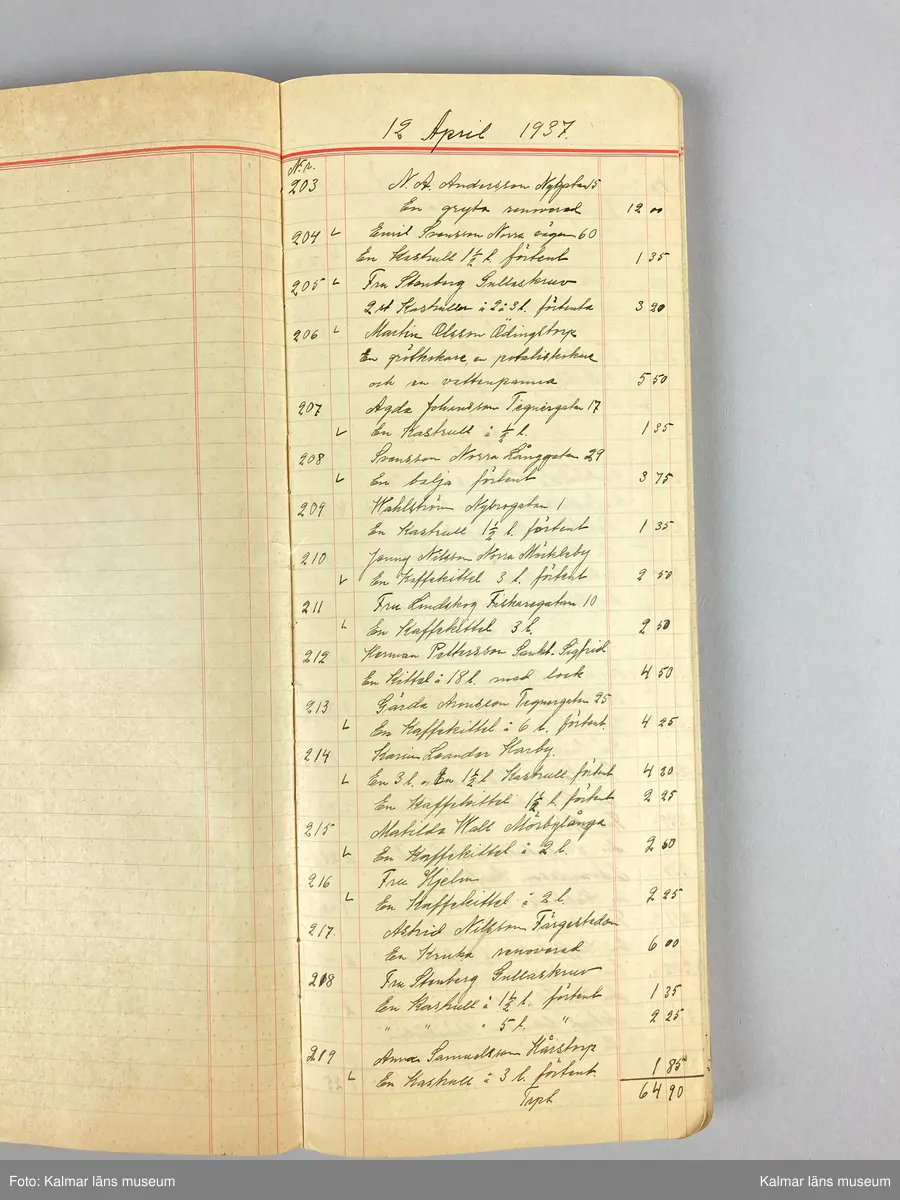 12 April 1937.
N:r.
203 N. A. Andersson 5
En gryta renoverad 12 00
204 Emil Svensson Norra vägen 60
En Kastrull 1½ l. förtent 1 35
205 Fru Stenberg Gullaskruv
2 st Kastruller à 2 à 3 l. förtenta 3 20
206 Martin Olsson Ödingstorp
En grötkokare, en potatiskokare
och en vattenpanna 5 50
207 Agda Johansson Tegnergatan 17
En Kastrull à ½ l. 1 35
208 Svensson Norra Långgatan 29
En balja förtent 3 75
209 Wahlström Nybrogatan 1
En Kastrull 1½ l. förtent 1 35
210 Jenny Nilsson Norra Möckleby
En Kaffekittel 3 l. förtent 2 50
211 Fru Lindskog Fiskaregatan 10
En Kaffekittel 3 l. 2 50
212 Herman Pettersson Sankt. Sigfrid
En Kittel à 18 l. med lock 4 50
213 Gärda Aronsson Tegnergatan 25
En Kaffekittel à 6 l. förtent. 4 25
214 Karin Leander Karby.
En 3 l. o. En 1½ l. Kastrull förtent 4 20
En Kaffekittel 1½ l. förtent 2 25
215 Matilda Wall Mörbylånga
En Kaffekittel à 2 l. 2 60
216 Fru Hjelm
En Kaffekittel à 2 l. 2 25
217 Astrid Nilsson Färgestaden
En Kruka renoverad 6 00
218 Fru Stenberg Gullaskruv
En Kastrull à 1½ l. förtent 1 35
" " " 5 l. " 2 25
219 Anna Samuelsson
En Kastrull à 3 l. förtent. 1 85
Trpt 64 90
Foto: Kalmar läns museum
Kalmar läns museum